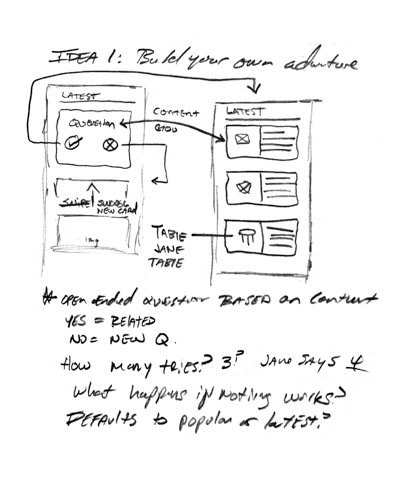 IDEA 1: Build your own adventure
LATEST
QUESTION
CONTENT
LATEST
SWIPE SUGGEST
NEW CARD
img
TABLE
JANE
TABLE
* OPEN ENDED QUESTION BASED on Content
YES = RELATED
NO = NEW Q.
How many tries? 3? JANE SAYS 4
What happens if nothing works?
DEFAULTS to popular or LATEST?